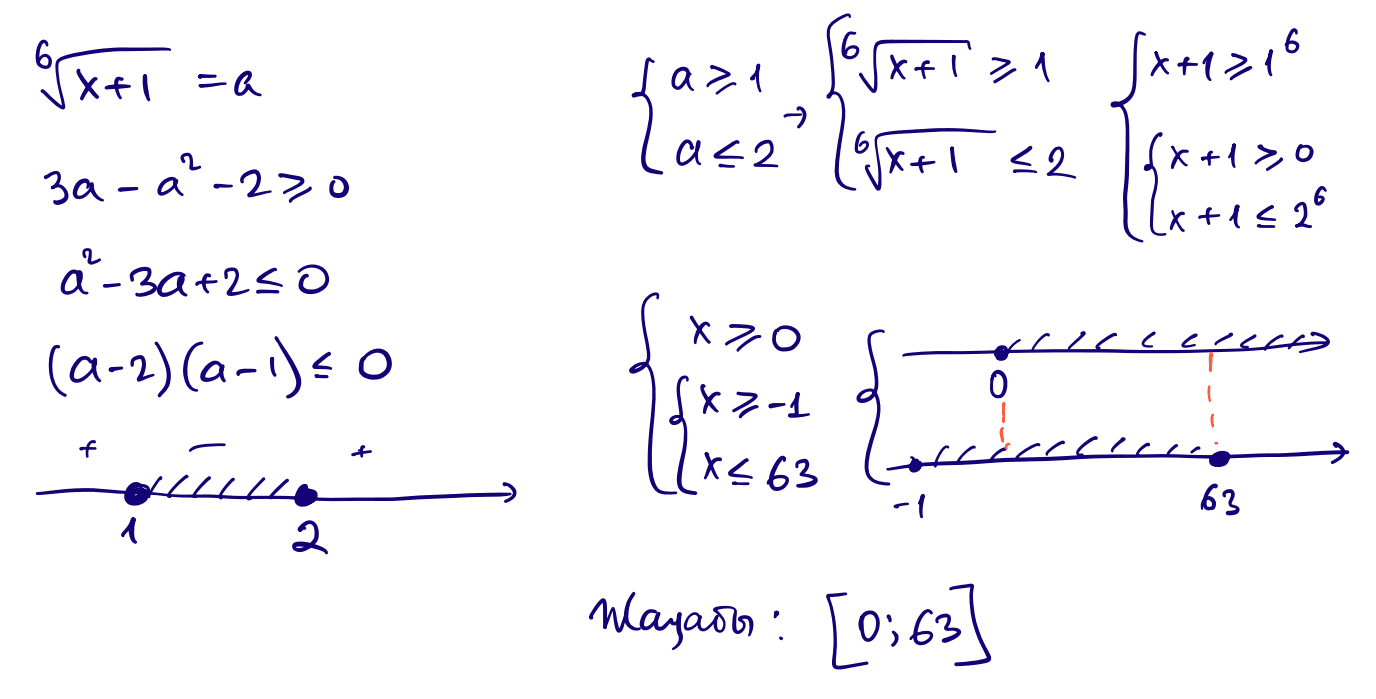 ⁶√(x+1) = a
3a - a² - 2 ≥ 0
a² - 3a + 2 ≤ 0
(a-2)(a-1) ≤ 0
+ − +
1 2
{ a ≥ 1
a ≤ 2 →
{ ⁶√(x+1) ≥ 1
⁶√(x+1) ≤ 2
{ x+1 ≥ 1⁶
{ x+1 ≥ 0
x+1 ≤ 2⁶
{ x ≥ 0
{ x ≥ -1
x ≤ 63
{ 0
-1 63
Жауабы: [0; 63]